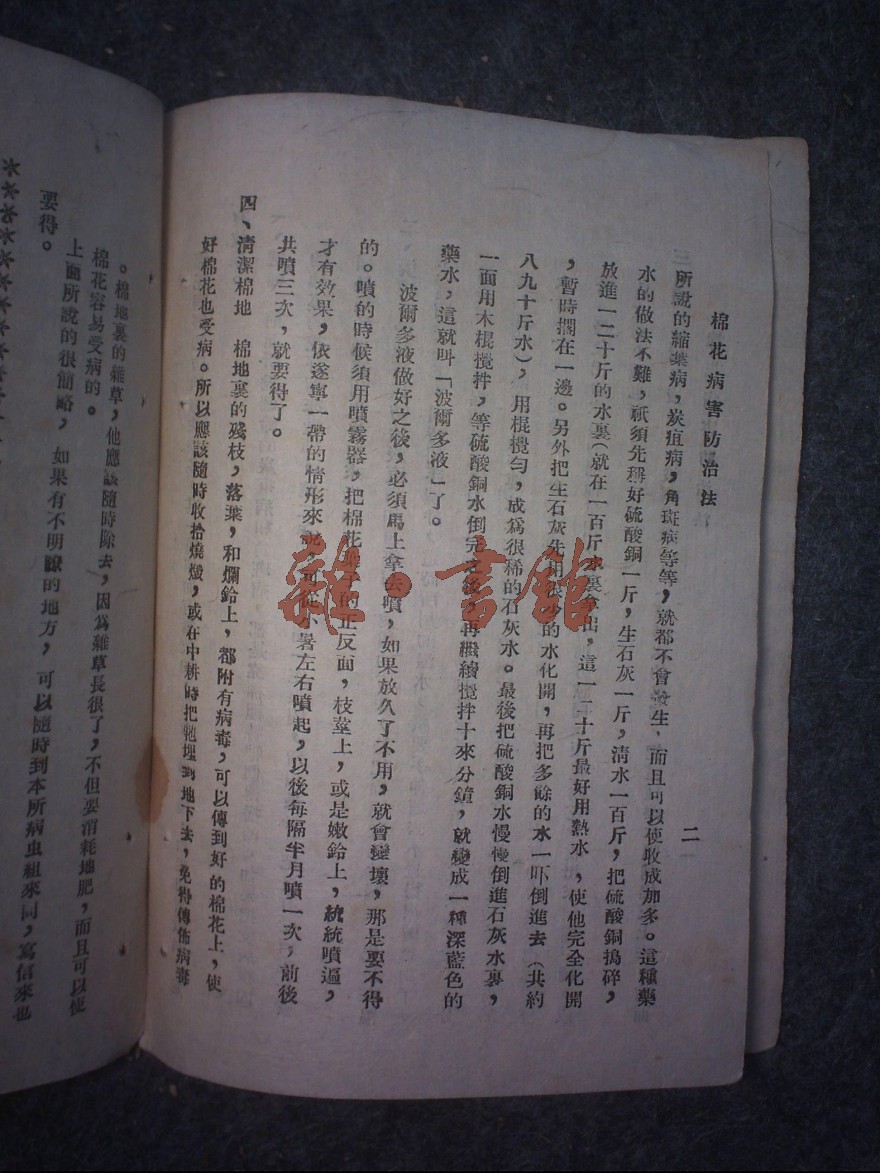 棉花病害防治法
二
所說的縮葉病，炭疽病，角斑病等等，就都不會發生，而且可以使收成加多。這種藥
水的做法不難，祇須先稱好硫酸銅一斤，生石灰一斤，清水一百斤，把硫酸銅搗碎，
放進一二十斤的水裏（就在一百斤水裏拿出，這一二十斤最好用熱水，使他完全化開
，暫時擱在一邊。另外把生石灰先用很少的水化開，再把多餘的水一吓倒進去（共約
八九十斤水），用棍攪勻，成爲很稀的石灰水。最後把硫酸銅水慢慢倒進石灰水裏，
一面用木棍攪拌，等硫酸銅水倒完之後，再繼續攪拌十來分鐘，就變成一種深藍色的
藥水，這就叫「波爾多液」了。
波爾多液做好之後，必須馬上拿去噴，如果放久了不用，就會變壞，那是要不得
的。噴的時候須用噴霧器，把棉花的正反面，枝莖上，或是嫩鈴上，統統噴遍，
才有效果，依遂寧一帶的情形來說，可從小暑左右噴起，以後每隔半月噴一次，前後
共噴三次，就要得了。
四、清潔棉地　棉地裏的殘枝，落葉，和爛鈴上，都附有病毒，可以傳到好的棉花上，使
好棉花也受病。所以應該隨時收拾燒燬，或在中耕時把牠埋到地下去，免得傳佈病毒
。棉地裏的雜草，他應該隨時除去，因爲雜草長很了，不但要消耗地肥，而且可以使
棉花容易受病的。
上面所說的很簡略，如果有不明瞭的地方，可以隨時到本所病虫組來問，寫信來也
要得。
雜·書館